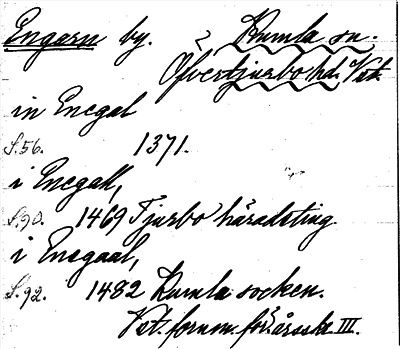 Engarn by. Kumla sn.
Öfvertjurbo hd. Vstm.
in Enegal
S. 56. 1371.
i Enegall,
S. 90. 1469 Tjurbo häradsting.
i Enegaal,
S. 92. 1482 Kumla socken.
Vst. fornm. för. årsskr III.